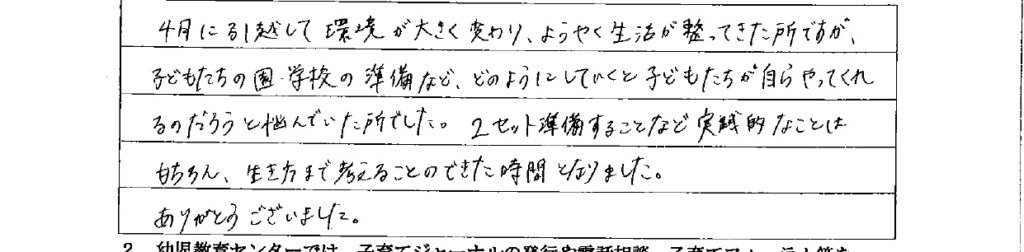 4月に引越して環境が大きく変わり、ようやく生活が整ってきた所ですが、
子どもたちの園・学校の準備など、どのようにしていくと子どもたちが自らやってくれ
るのだろうと悩んでいた所でした。2セット準備することなど実践的なことは
もちろん、生き方まで考えることのできた時間となりました。
ありがとうございました。
2 幼児教育センターでは、子育てジャーナルの発行や電話相談、子育てフォーラム等を